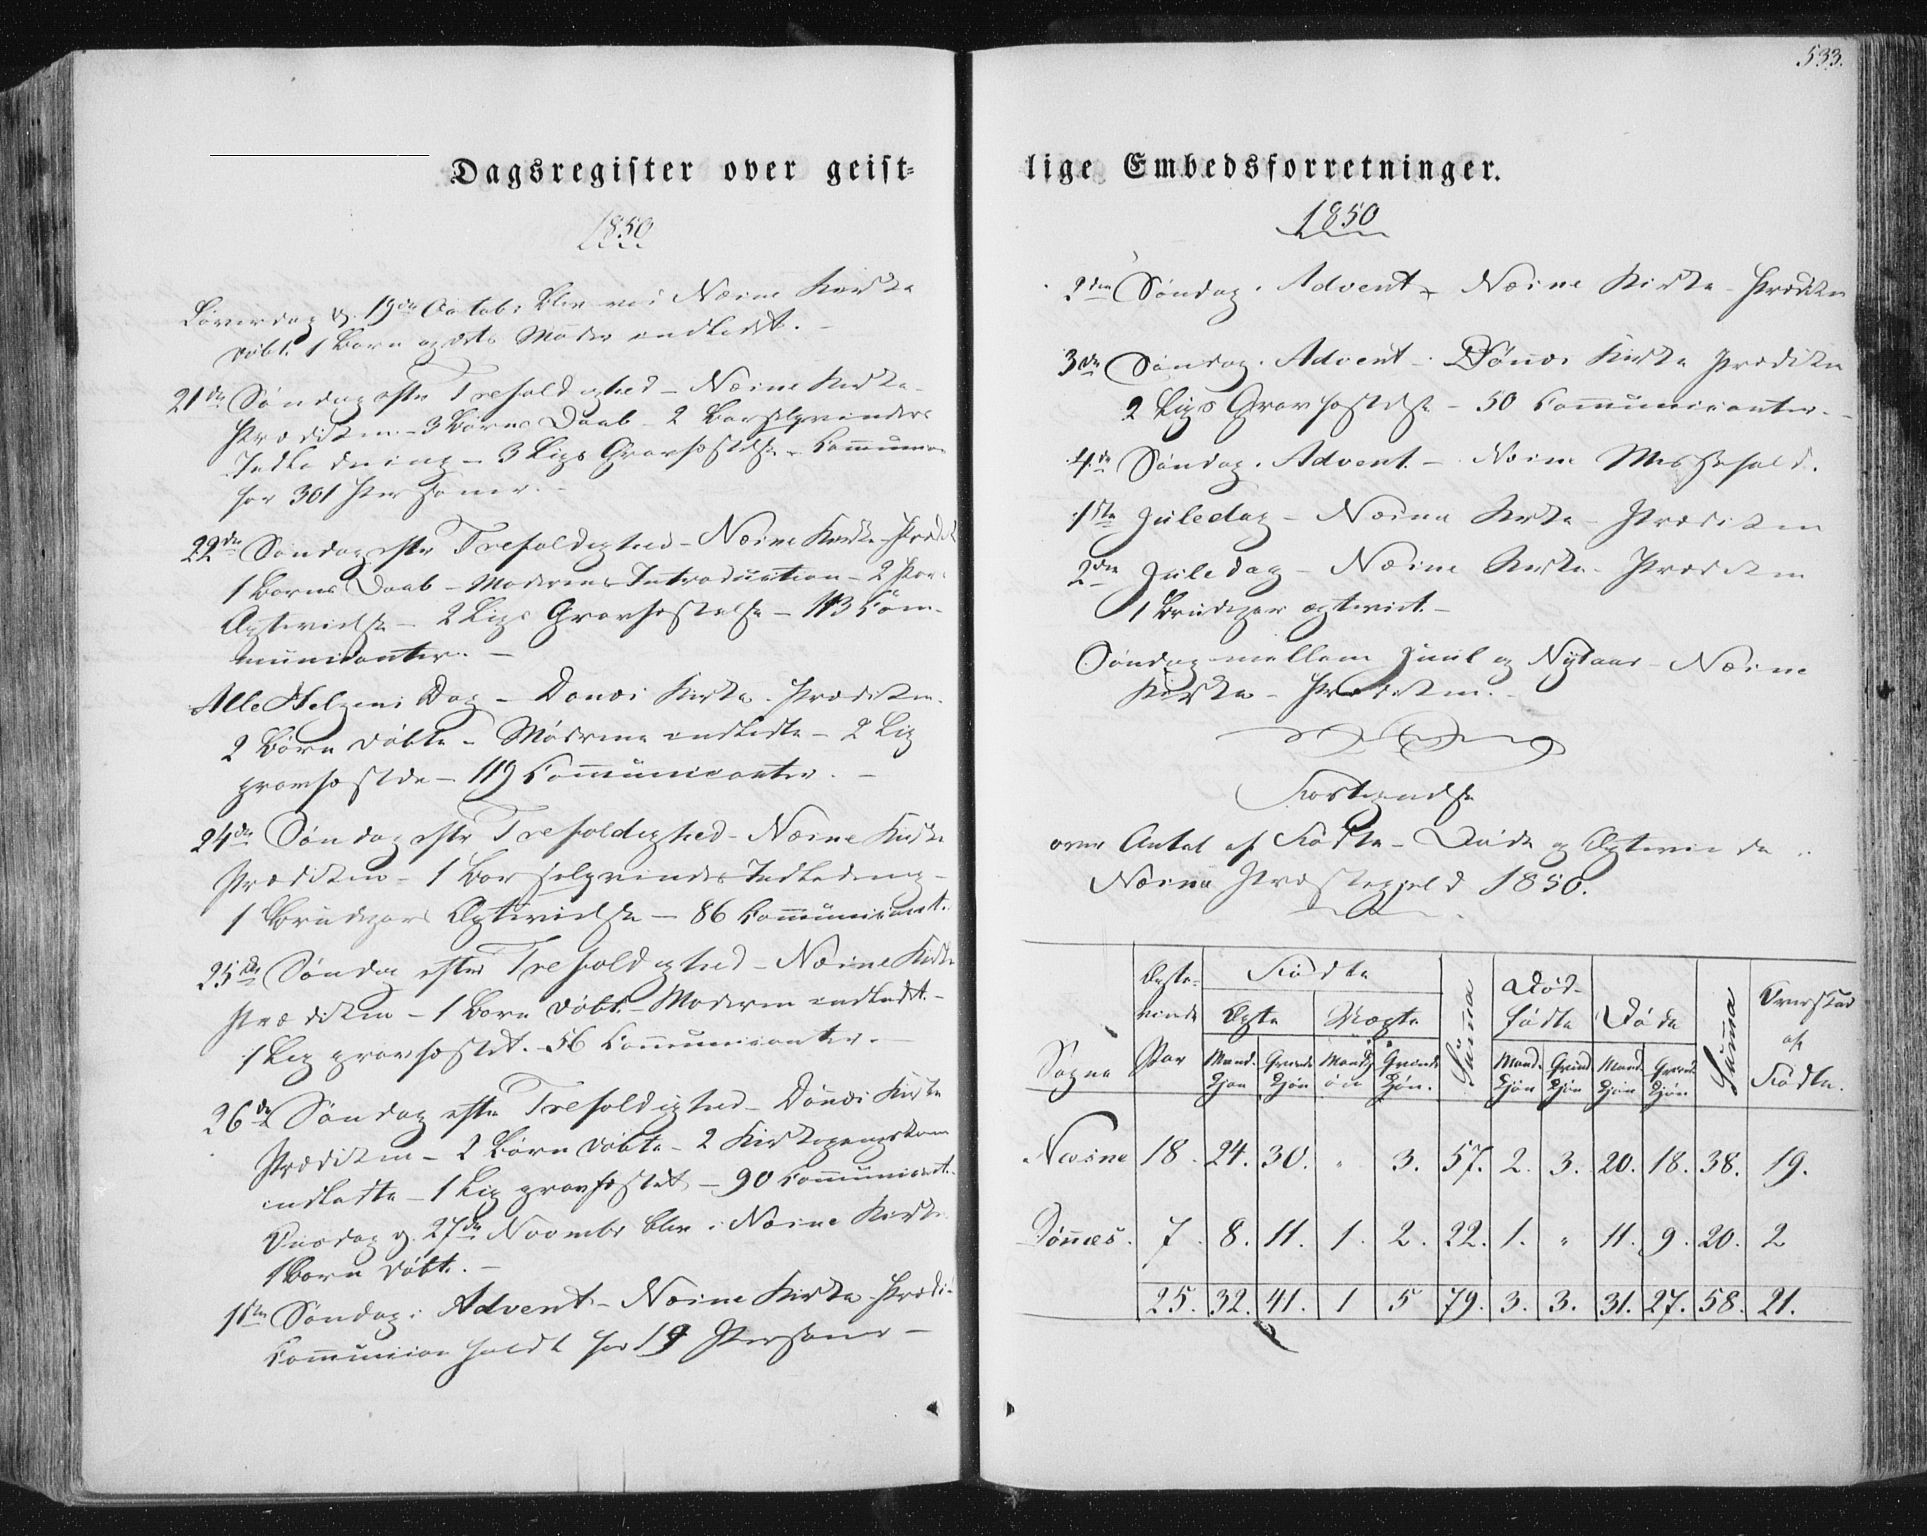 533.
Dagsregister over geist-
1850
Løverdag d. 19de Octob: blev ved Næsne Kirke
døbt 1 Barn og dets Moder indledet. –
21de Søndag efter Trefoldighed – Næsne Kirke –
Prædiken – 3 Børns Daab – 2 Barselqvinders
Indledning – 3 Ligs Gravfæstelse – Communion
for 301 Personer. –
22de Søndag efter Trefoldighed – Næsne Kirke – Prædik
1 Barns Daab – Moderens Introduction – 2 Pars
Ægtevielse – 2 Ligs Gravfæstelse – 113 Com-
municanter. –
Alle Helgens Dag – Dønæs Kirke – Prædiken.
2 Børn døbte – Mødrene indledte – 2 Lig
gravfæstede – 119 Communicanter. –
24de Søndag efter Trefoldighed – Næsne Kirke
Prædiken – 1 Barselqvindes Indledning –
1 Brudepars Ægtevielse – 86 Communicant.
25de Søndag efter Trefoldighed – Næsne Kirke
Prædiken – 1 Barn døbt – Moderen indledt. –
1 Lig gravfæstet. – 56 Communicanter. –
26de Søndag efter Trefoldighed – Dønæs Kirke
Prædiken – 2 Børn døbte – 2 Kirkegangskoner
indledte – 1 Lig gravfæstet – 90 Communicant.
Onsdag d. 27de Novembr blev i Næsne Kirke
1 Barn døbt. –
1ste Søndag i Advent – Næsne Kirke – Prædi-
Communion holdt for 19 Personer –
lige Embedsforretninger.
1850
2den Søndag i Advent – Næsne Kirke – Prædiken
3de Søndag i Advent – Dønæs Kirke Prædiken
2 Ligs Gravfæstelse – 50 Communicanter. –
4de Søndag i Advent. – Næsne Messefald.
1ste Juledag – Næsne Kirke – Prædiken
2den Juledag – Næsne Kirke – Prædiken
1 Brudepar ægteviet. –
Søndag mellem Juul og Nytaar – Næsne
Kirke – Prædiken. –
Fortegnelse
over Antal af Fødte – Døde og Ægteviede i
Næsne Præstegjeld 1850.
Sogne | Ægte-viede Par | Fødte | Summa | Død-fødte | Døde | Summa | Overskud af Fødte.
Ægte | Uægte
Mand. Kjøn | Qvinde Kjøn | Mandkjøn | Qvinde Kjøn. | Mand. Kjøn | Qvind Kjøn | Mand. Kjøn | Qvind. Kjøn
Næsne 18. 24. 30. " 3. 57. 2. 3. 20. 18. 38. 19.
Dønnæs. 7. 8. 11. 1. 2. 22. 1. " 11. 9. 20. 2
25. 32. 41. 1 5 79. 3. 3. 31. 27. 58. 21.